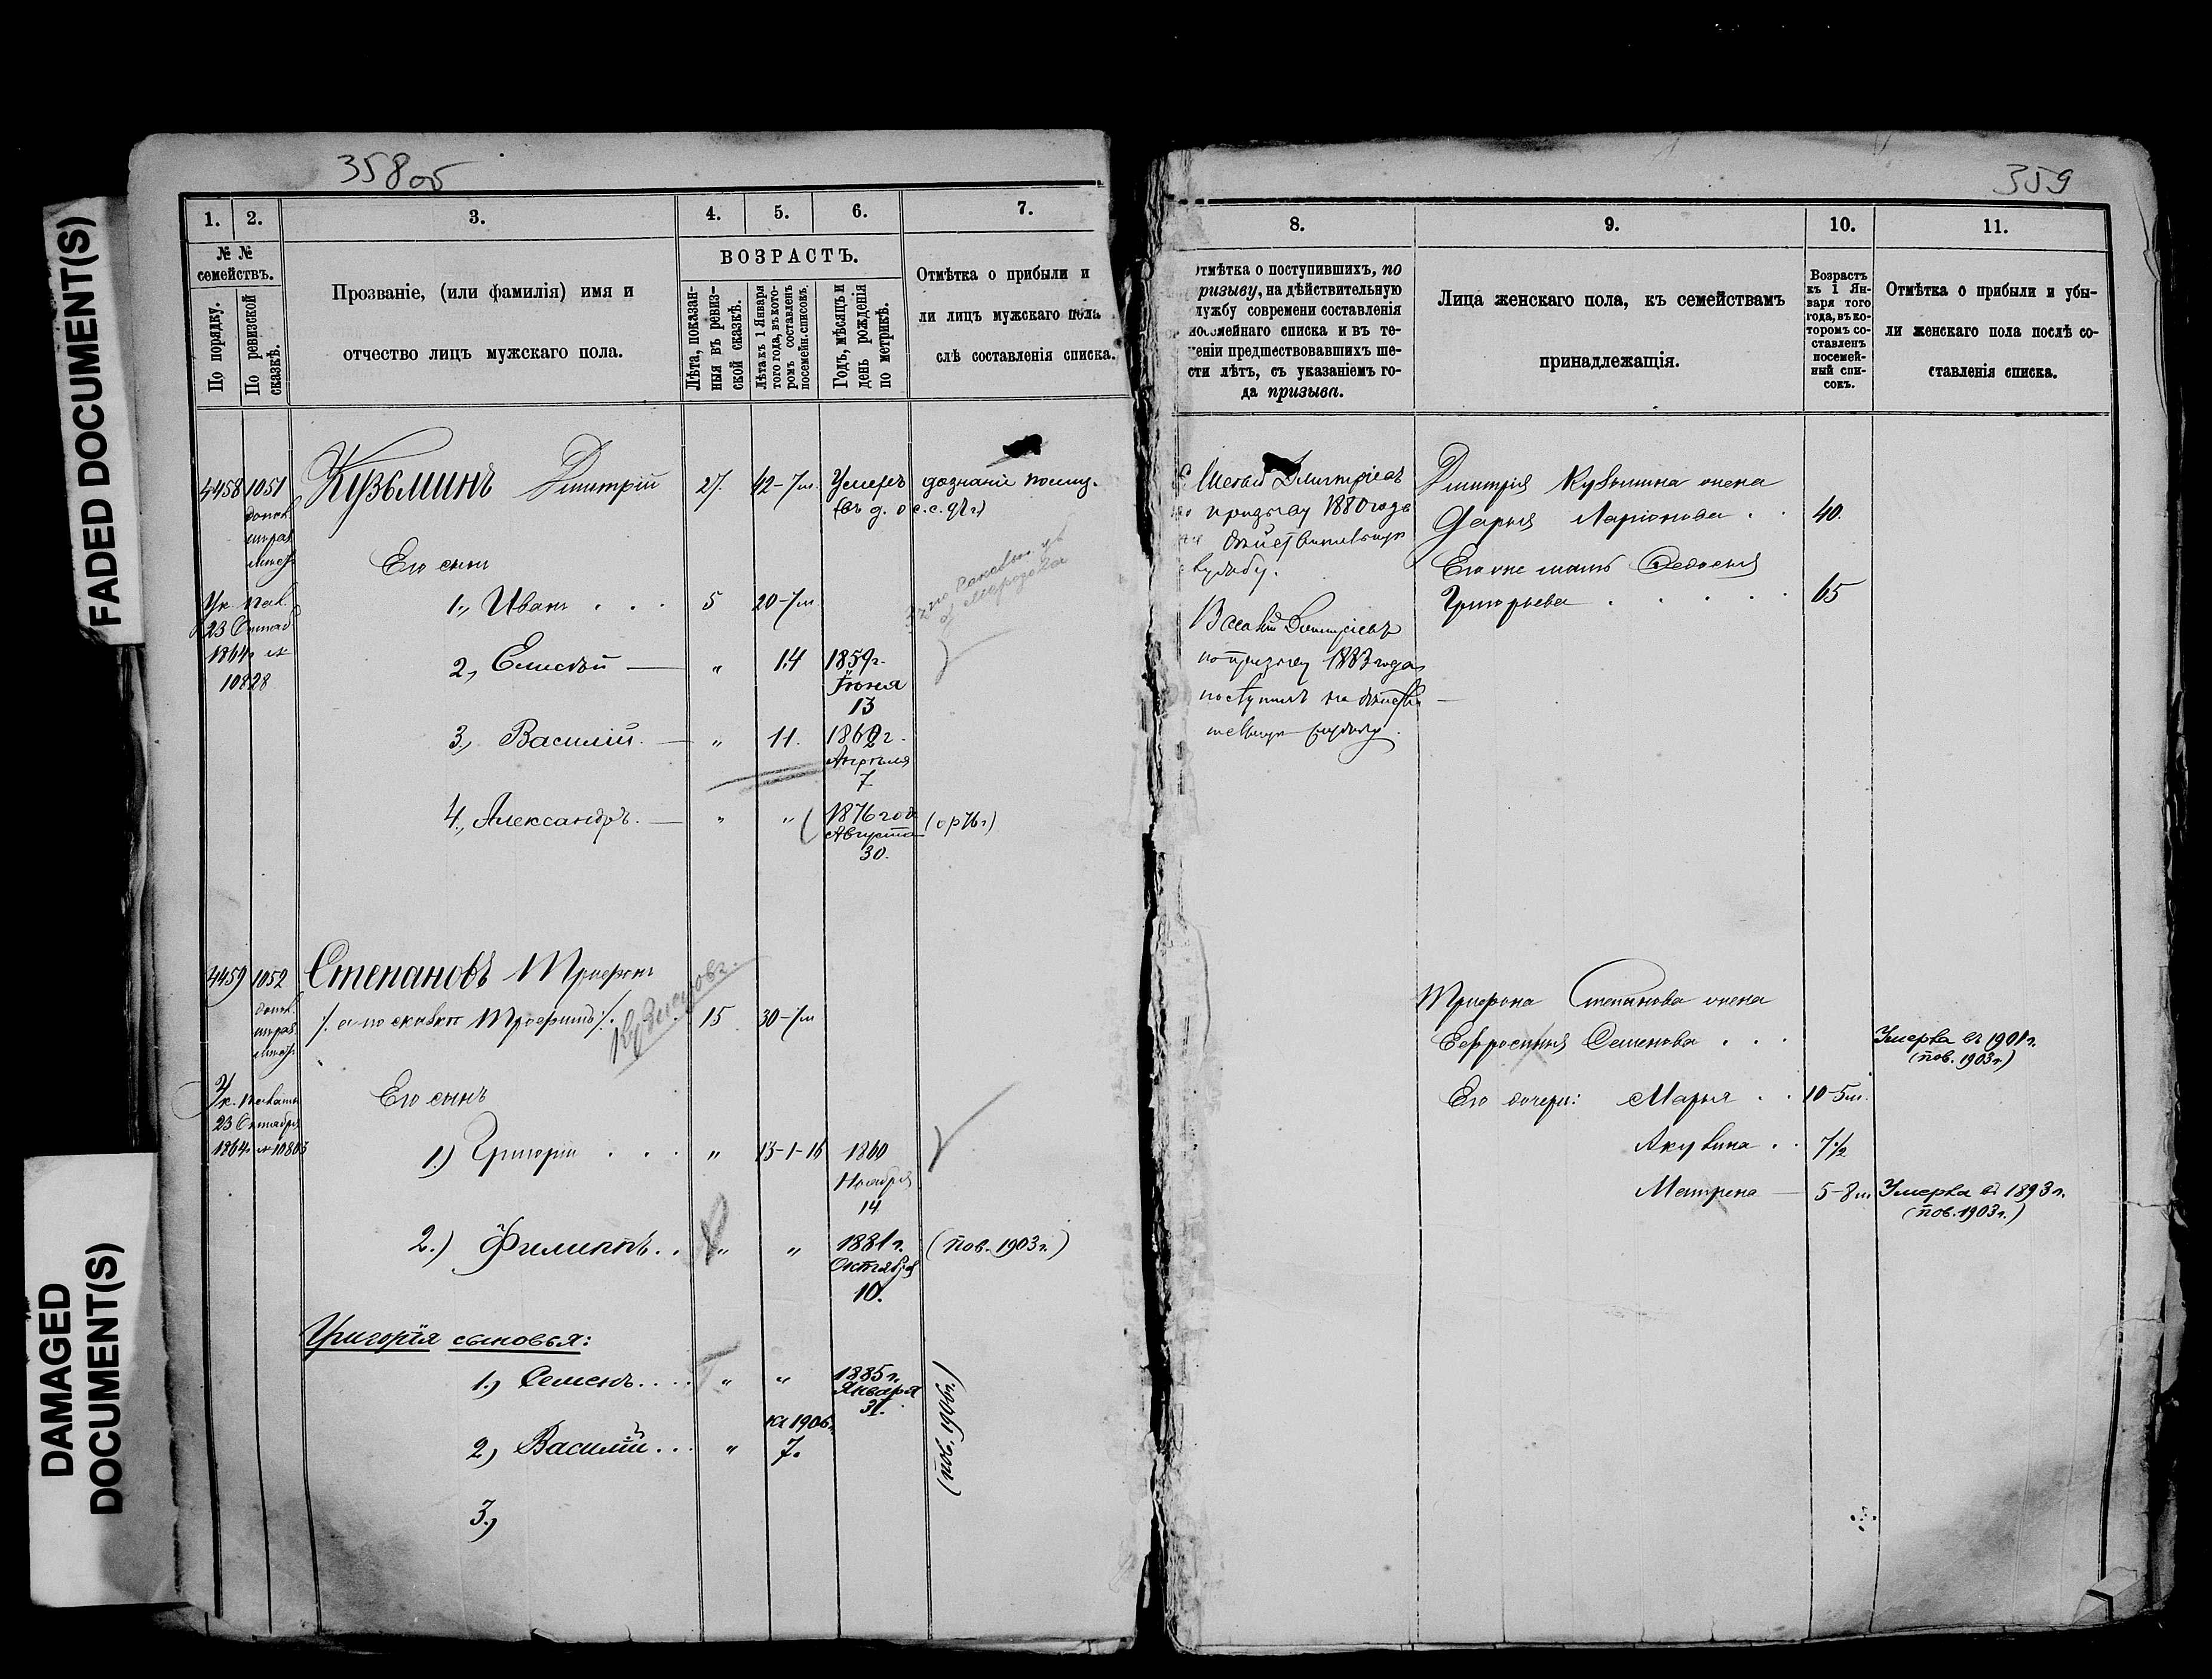 FADED DOCUMENT(S)
DAMAGED
DOCUMENT(S)
358об
1. 2. 3. 4. 5. 6. 7.
№ №
семействъ.
По порядку.
По ревизской
сказкѣ.
Прозваніе, (или фамилія) имя и
отчество лицъ мужскаго пола.
ВОЗРАСТЪ.
Лѣта, показан-
ныя въ ревиз-
ской сказкѣ.
Лѣта къ 1 Января
того года, въ кото-
ромъ составленъ
посемейн. списокъ.
Годъ, мѣсяцъ и
день рожденія
по метрикѣ.
Отмѣтка о прибыли и
ли лицъ мужскаго пола
слѣ составленія списка.
4458 1051 Кузьминъ Дмитрій 27. 42-7м Умеръ дознаніе полиц.
Его сын
1., Иванъ 5 20-7м
2., Елисѣй — „ 14 1859г.
Іюня
13
3., Василій. — „ 11. 1862г.
Апрѣля
7
4., Александръ. — „ „ 1876 год
Августа
30.
(ор 76г)
23 Октяб
1864г №
10828
4459 1052 Степановъ Трифонъ
/. а по сказкѣ Трофимъ ./. 15 30-7м
Кузнецовъ.
23 Октября
1864г № 10803
Его сынъ
1.) Григорій . . . „ 13-1-16 1860
Ноября
14
2.) Филиппъ. . „ „ 1881г. (пов. 1903г.)
Октября
10.
Григорія сыновья:
1.) Семенъ. . . . „ „ 1885г.
Января
31.
кь 1906г.
2.) Василій. . . „ 7.
(пов. 1906г.)
3.)
359
8. 9. 10. 11.
тмѣтка о поступившихъ, по
ризыву, на дѣйствительную
лужбу современи составленія
посемейнаго списка и въ те-
ченіи предшествовавшихъ ше-
сти лѣтъ, съ указаніемъ го-
да призыва.
Лица женскаго пола, къ семействамъ
принадлежащія.
Возрастъ
къ 1 Ян-
варя того
года, въ ко-
торомъ со-
ставленъ
посемей-
ный спи-
сокъ.
Отмѣтка о прибыли и убы-
ли женскаго пола послѣ со-
ставленія списка.
Дмитріевъ
призыву 1880 года
службу.
Василій Дмитріевъ
по призыву 1883 года
поступилъ на дѣйстви —
тельную службу.
Дмитрія Кузьмина жена
Дарья Ларіонова . . 40.
Его же мать Ѳедосья
Григорьева . . . . . 65
Трифона Степанова жена
Ефросинья Семенова . . . Умерла въ 1901г.
(пов. 1903г.)
Его дочери: Марья . . 10-5м.
Акулина . . 7½
Матрена — 5-8м Умерла въ 1893г.
(пов. 1903г.)